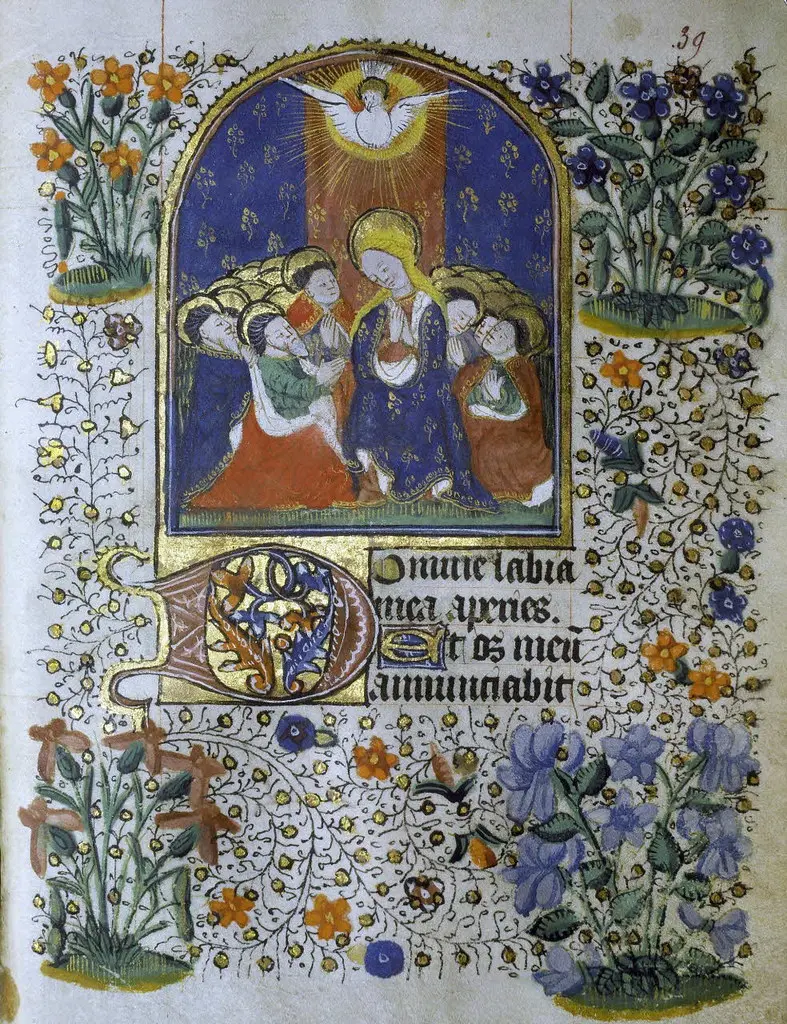 39
Domine labia
mea aperies.
Et os meū
annunciabit